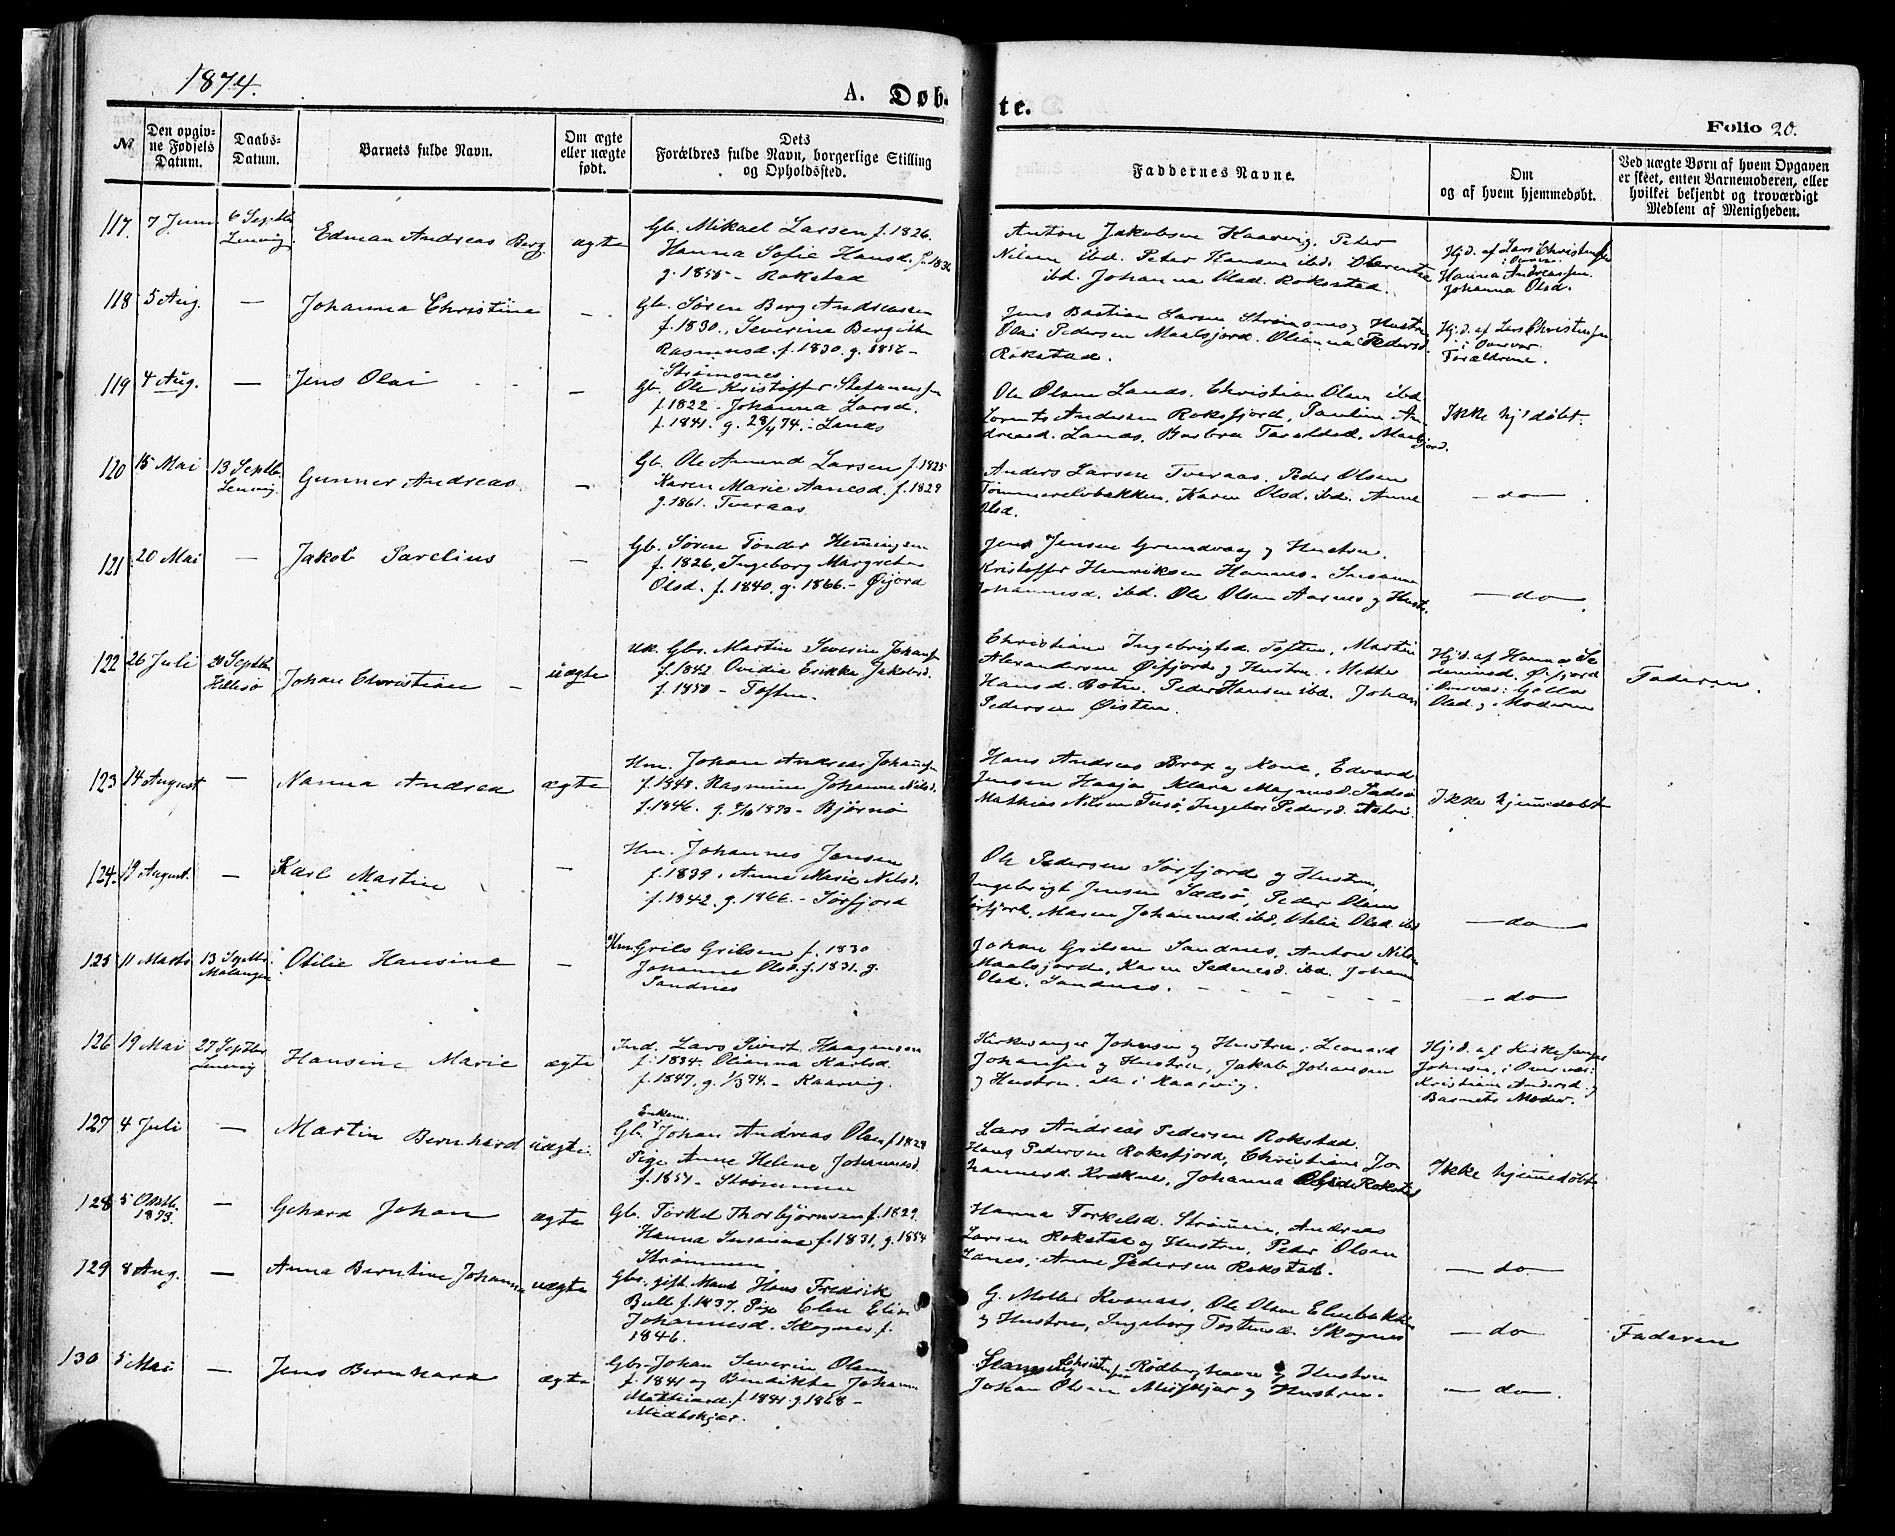 1874.
A. Døb-
te.
Folio 20.
№
Den opgiv-
ne Fødsels
Datum.
Daabs-
Datum.
Barnets fulde Navn.
Om ægte
eller uægte
født.
Dets
Forældres fulde Navn, borgerlige Stilling
og Opholdssted.
Faddernes Navne.
Om
og af hvem hjemmedøbt.
Ved uægte Børn af hvem Opgaven
er skeet, enten Barnemoderen, eller
hvilket bekjendt og troværdigt
Medlem af Menigheden.
117.
7 Juni
6 Septbr
Lenvig.
Edman Andreas Berg.
ægte
Gb. Mikael Larsen f. 1826.
Hanna Sofie Hansd. f. 1836
g. 1855 - Rokstad
Anton Jakobsen Kaarvig, Peter
Nilsen ibd. Peter Hansen ibd.
ibd. Johanna Olsd. Rokstad.
Hjd. af Lars Christensen
i Overvær:
Hanna Andreassen.
Johanna Olsd.
118
5 Aug.
—
Johanna Christine
—
Gb. Søren Berg Andreassen
f. 1830, Severine Bergitte
Rasmusd. f. 1830. g. 1856 -
Strømsnes
Jens Bastian Larsen Strømsnes og Hustru
Olai Pedersen Maalsjord. Olianna Pedersd.
Rokstad.
Hjd. af Lars Christensen
i Overvær
Forældrene.
119
4 Aug.
—
Jens Olai
—
Gb. Ole Kristoffer Stefanussen
f. 1822 - Johanna Larsd.
f. 1841. g. 28/4 74. - Lands
Ole Olsen Lands. Christian Olsen ibd.
Lorents Andersen Roksfjord, Pauline An-
dreasd. Lands, Barbra Taraldsd. Maalsjord.
Ikke hj.døbt.
120
15 Mai
13 Septbr
Lenvig.
Gunner Andreas.
—
Gb. Ole Amund Larsen f. 1825
Karen Marie Aanesd. f. 1829
g. 1861. Tveraas
Anders Larsen Tveraas. Peder Olsen
Tømmerelvbakken, Karen Olsd. ibd. Anne
Olsd.
— do —
121
20 Mai
—
Jakob Parelius
—
Gb. Søren Tønder Hemingsen
f. 1826, Ingeborg Margrethe
Olsd. f. 1840. g. 1866. - Øijord
Jens Jensen Grundvaag og Hustru,
Kristoffer Henriksen Hannes. Susanne
Johannesd. ibd. Ole Olsen Aarnes og Hust.
— do —
122
26 Juli
20 Septbr
Hillesø
Johan Christian
—
uægte
Uk. Gbr. Martin Severin Johansen
f. 1842 Ovidia Erikke Jakobsd.
f. 1850 - Toften.
Christiane Ingebrigtsd. Toften, Martin
Alexandersen Øifjord og Hustru. Mette
Hansd. Botn. Peder Hansen ibd. Johan
Pedersen Øisten.
Hjd. af Hanna
Øifjord
i Overvær:
Olsd. og Moderen
Faderen.
123
14 August
—
Nanna Andrea
ægte
Hm. Johan Andreas Johansen
f. 1848. Rasmine Johanne Nilsd.
f. 1846. g. 1870 - Bjørnø
Hans Andreas Brox og Kone, Edvard
Jensen Haaja Klara Magnusd. Sædsø
Mathias Nilsen Tusø, Ingebor Pedersd.
Ikke hjemmedøbt
124.
19 August.
—
Karl Martin
—
Hm. Johannes Jensen
f. 1839, Anne Marie Nilsd.
f. 1842. g. 1866. - Sørfjord
Ole Pedersen Sørfjord og Hustru,
Ingebrigt Jensen Sædsø, Peder Olsen
Sørfjord, Maren Johannesd. ibd. Otelia Olsd. ibd
— do —
125
11 Marts
13 Septbr.
Malangen
Otilie Hansine
—
Hm. Grils Grilsen f. 1830
Johanne Olsd. f. 1831. g.
Sandnes
Johan Grilsen Sandnes, Anton Nils.
Maalsjord, Karen Pedersd. ibd. Johan
Olsd. Sandnes.
— do —
126
19 Mai
27 Septbr
Lenvig
Hansine Marie
ægte
Ind. Lars Sivert Haagensen
f. 1834. Olianna Karlsd.
f. 1847. g. 1/3 74. - Kaarvig.
Kirkesanger Johnsen og Hustru, Leonard
Johansen og Hustru, Jakob Johansen
og Hustru. alle i Kaarvig.
Hjd. af Kirkesanger
Johnsen, i Overvær:
Kristiane Andersd. og
Barnets Moder.
127
4 Juli
—
Martin Bernhard
uægte
Enkem.
Gb. Johan Andreas Olsen f. 1824
Pige Anne Helene Johannesd.
f. 1851 - Strømmen
Lars Andreas Pedersen Rokstad.
Hans Pedersen Roksfjord, Christiane Jo-
hannesd. Kraknes, Johanna Rokstad
Ikke hjemmedøbt
128
5 Octbr.
1873.
—
Gehard Johan
ægte
Gb. Torkel Thorbjørnsen f. 1829.
Hanna Susanna f. 1831. g. 1854
Strømmen
Hanna Torkelsd. Strømmen, Andreas
Larsen Rokstad og Hustru, Peder Olsen
Lanes, Anne Pedersen Rokstad.
— do —
129
8 Aug.
—
Anna Berntine Johanna
uægte
Gbr. gift Mand Hans Fredrik
Bull f. 1837. Pige Elen Elise
Johannesd. Skognes f.
1846.
G. Moller Kvanaas, Ole Olsen Elvebakken
og Hustru, Ingeborg Tostensd. Skognes
— do —
Faderen
130
5 Mai
—
Jens Bernhard
ægte
Gbr. Johan Severin Olsen
f. 1841 og Bendikke Johanne
f. 1841 g. 1868 -
Medbskjær.
Christ. Rødberghavn og Hustru
Johan Olsen og Hustru.
— do —.